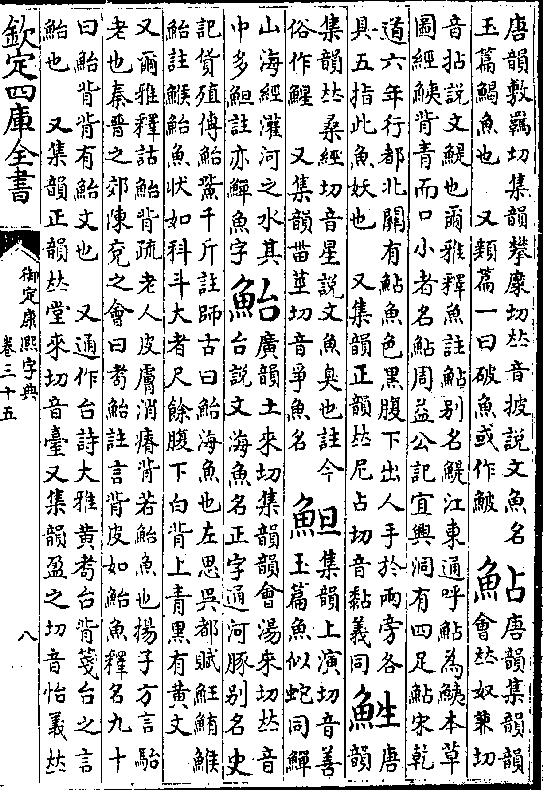 唐韻敷羈切集韻攀糜切𠀤音披說文魚名
玉篇鯣魚也 又類篇一曰破魚或作鮍
鮎
唐韻集韻韻
會𠀤奴兼切
音拈說文鯷也爾雅釋魚註鮎别名鯷江東通呼鮎為鮧本草
圖經鮧背青而口小者名鮎周益公記宜興洞有四足鮎宋乾
道六年行都北關有鮎魚色黑腹下出人手於兩旁各
具五指此魚妖也 又集韻正韻𠀤尼占切音黏義同
鮏
唐
韻
集韻𠀤桑經切音星說文魚臭也註今
俗作鯹 又集韻甾莖切音爭魚名
䱇
集韻上演切音善
玉篇魚似蛇同鱓
山海經灌河之水其
中多䱇註亦鱓魚字
鮐
廣韻土來切集韻韻會湯來切𠀤音
台說文海魚名正字通河豚别名史
記貨殖傳鮐鮆千斤註師古曰鮐海魚也左思吳都賦鮏鮪鯸
鮐註鯸鮐魚狀如科斗大者尺餘腹下白背上青黑有黄文
又爾雅釋詁鮐背疏老人皮膚消瘠背若鮐魚也揚子方言鮐
老也秦晉之郊陳兗之會曰耇鮐註言背皮如鮐魚釋名九十
曰鮐背背有鮐文也 又通作台詩大雅黄耇台背箋台之言
鮐也 又集韻正韻𠀤堂來切音臺又集韻盈之切音怡義𠀤
欽定四庫全書
御定康熙字典
卷三十五
八